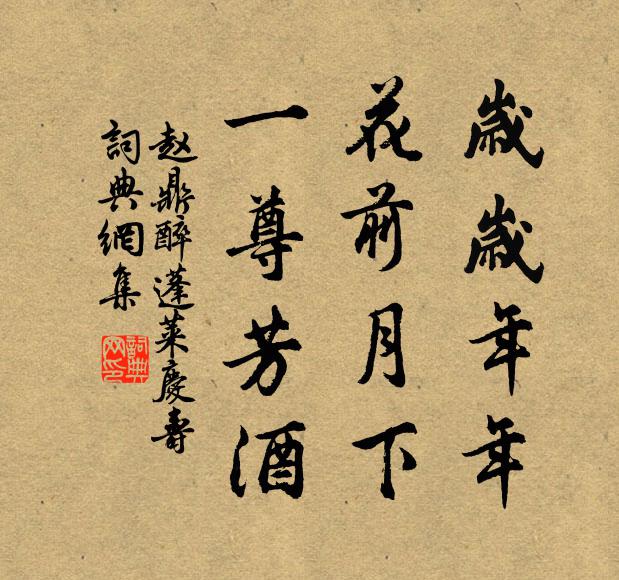 歲歲年年
花前月下
一尊芳酒
赵鼎醉蓬萊慶壽
詞典網集
詞典网印